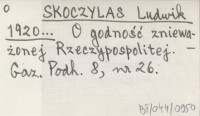 o
SKOCZYLAS Ludwik
1920... O godność zniewa-
żonej Rzeczypospolitej. -
Gaz. Podh. 8, nr 26.
BJ/044/0950